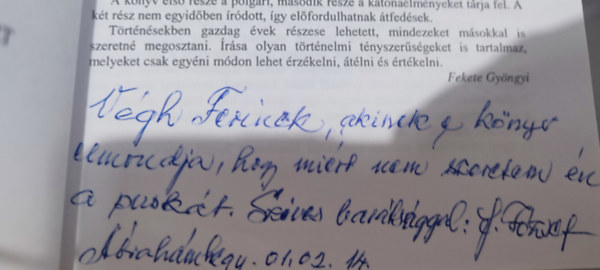 A könyv első része a polgári, második része a katonaélményeket tárja fel. A
két rész nem egyidőben íródott, így előfordulhatnak átfedések.
Történésekben gazdag évek részese lehetett, mindezeket másokkal is
szeretné megosztani. Írása olyan történelmi tényszerűségeket is tartalmaz,
melyeket csak egyéni módon lehet érzékelni, átélni és értékelni.
Fekete Gyöngyi
Végh Ferinek, akinek e könyv
elmondja, hogy miért nem szeretem én
a puskát. Szíves barátsággal:
Ábrahámhegy. 01.02. 14.